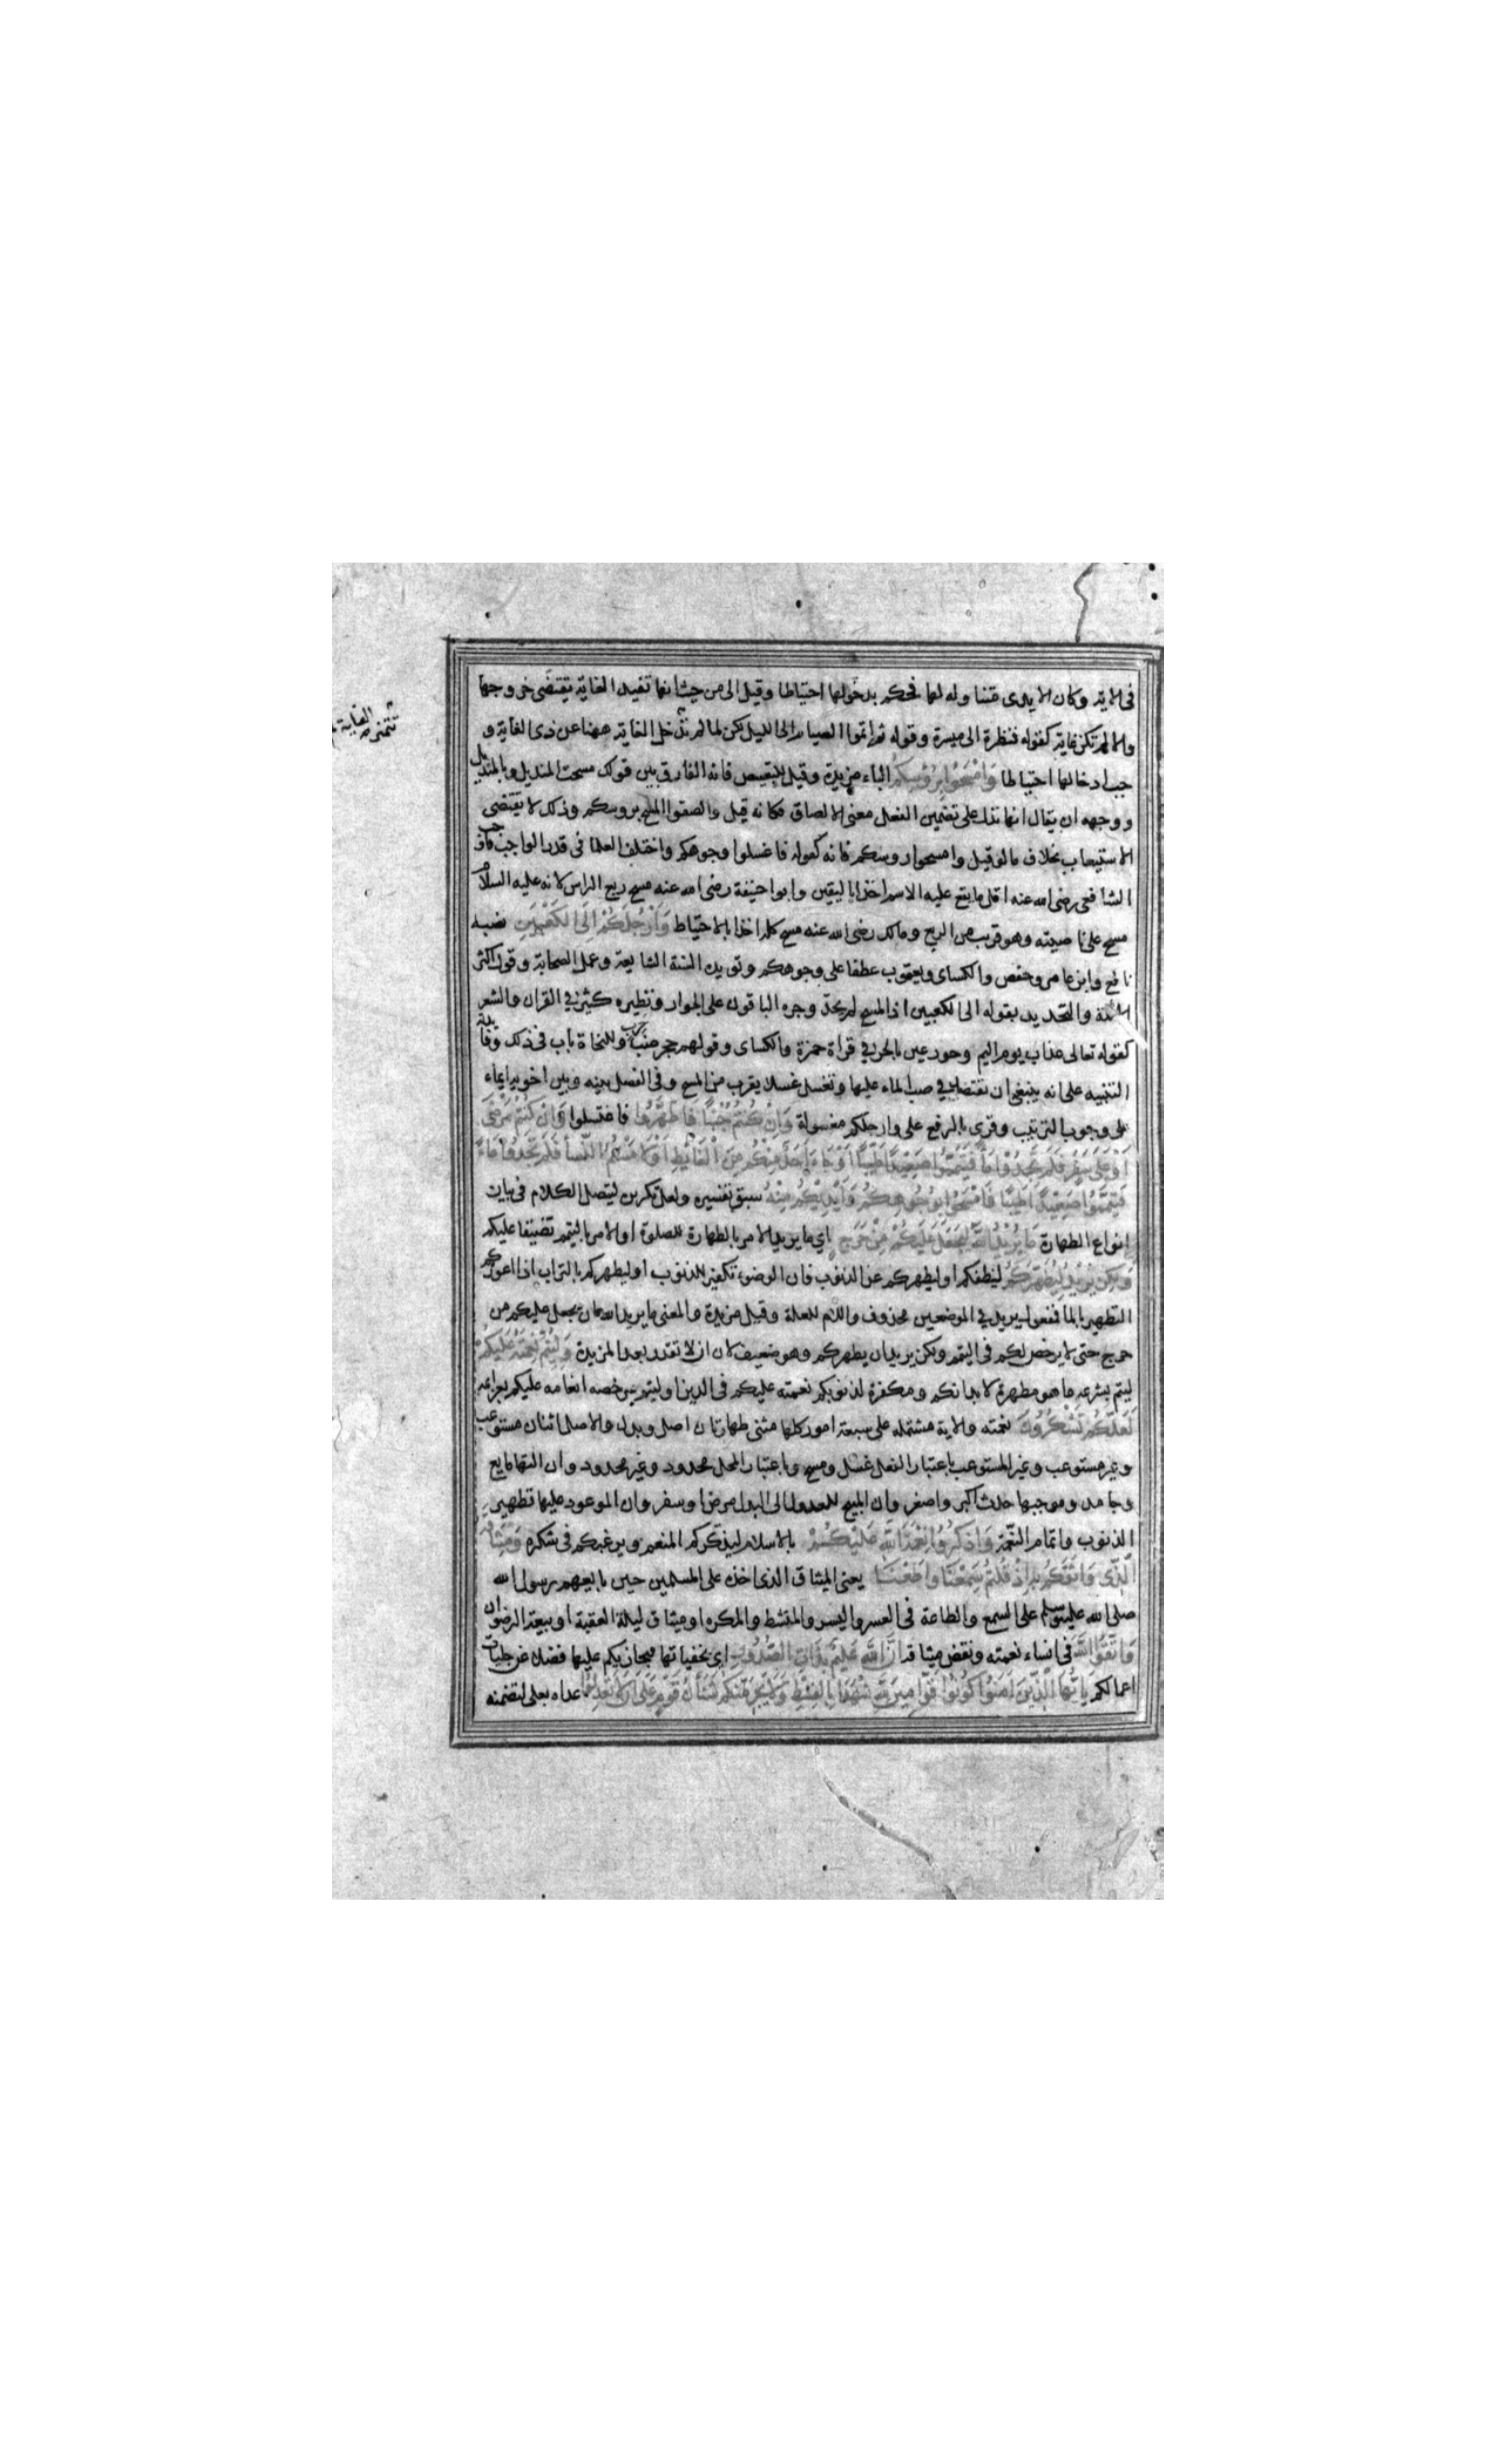 في الاية وكان الايدى متناولة لها فحكم بدخولها احتياطا وقيل الى من حيث انها تفيد الغاية تقتضى خروجها
والا لم تكن غاية كقوله فنظرة الى ميسرة وقوله ثم اتموا الصيام الى الليل لكن لما لم تدخل الغاية ههنا عن ذى الغاية و
جب ادخالها احتياطا وَامْسَحُوا بِرُؤسِكُمْ الباء مزيدة وقيل للتبعيض فانه الفارق بين قولك مسحت المنديل وبالمنديل
ووجهه ان يقال انها تدل على تضمين الفعل معنى الالصاق فكانه قيل والصقوا المسح بروسكم وذلك لا يقتضى
الاستيعاب بخلاف ما لو قيل وامسحوا روسكم فانه كقوله فاغسلوا وجوهكم واختلف العلما فى قدر الواجب فاوجب
الشافعى رضى الله عنه اقل ما يقع عليه الاسم اخذا باليقين وابو حنيفة رضى الله عنه مسح ربع الراس لانه عليه السلام
مسح على ناصيته وهو قريب من الربع ومالك رضى الله عنه مسح كله اخذا بالاحتياط وَأَرْجُلَكُمْ إِلَى الْكَعْبَيْنِ نصبه
نافع وابن عامر وحفص والكساى ويعقوب عطفا على وجوهكم وتويده السنة الشايعة وعمل الصحابة وقول اكثر
الائمة والتحديد بقوله الى الكعبين اذ المسح لم يحد وجره الباقون على الجوار ونظيره كثير في القران والشعر
كقوله تعالى عذاب يوم اليم وحور عين بالجر في قراة حمزة والكساى وقولهم جحر ضب خرب وللنحاة باب فى ذلك وفايدته
التنبيه على انه ينبغى ان تقتصد في صب الماء عليها وتغسل غسلا يقرب من المسح وفى الفصل بينه وبين اخويه ايماء
على وجوب الترتيب وقرى بالرفع على وارجلكم مغسولة وَاِنْ كُنْتُمْ جُنُبًا فَاطَّهَّرُوا فاغتسلوا وَاِنْ كُنْتُمْ مَرْضَى
اَوْ عَلَى سَفَرٍ
فَتَيَمَّمُوا صَعِيْدًا طَيِّبًا فَامْسَحُوا بِوُجُوهِكُمْ وَأَيْدِيْكُمْ مِنْهُ سبق تفسيره ولعل تكريره ليتصل الكلام فى بيان
انواع الطهارة مَا يُرِيْدُ اللهُ لِيَجْعَلَ عَلَيْكُمْ مِنْ حَرَجٍ اي ما يريد الامر بالطهارة للصلوة او الامر باليتمم تضييقا عليكم
وَلكِنْ يُرِيْدُ لِيُطَهِّرَكُمْ لينظفكم او ليطهركم عن الذنوب فان الوضوء تكفير للذنوب او ليطهركم بالتراب اذا اعوزكم
التطهير بالما فمفعول يريد في الموضعين محذوف واللام للعلة وقيل مزيدة والمعنى ما يريد الله ان يجعل عليكم من
حرج حتى لا يرخص لكم فى اليتمم ولكن يريد ان يطهركم وهو ضعيف لان ان لا تقدر بعد المزيدة وَلِيُتِمَّ نِعْمَتَهُ عَلَيْكُمْ
ليتم بشرعه ما هو مطهرة لابدانكم ومكفرة لذنوبكم نعمته عليكم فى الدين او ليتم برخصه انعامه عليكم بعزايمه
لَعَلَّكُمْ تَشْكُرُونَ نعمته والاية مشتملة على سبعة امور كلها مثنى طهارتان اصل وبدل والاصل اثنان مستوعب
وغير مستوعب وغير المستوعب باعتبار الفعل غسل ومسح وباعتبار المحل محدود وغير محدود وان التهما مايع
وجامد وموجبهما حدث اكبر واصغر وان المبيح للعدول الى البدل مرض او سفر وان الموعود عليها تطهير
الذنوب واتمام النعمة وَاذْكُرُوا نِعْمَةَ اللهِ عَلَيْكُمْ بالاسلام ليذكركم المنعم ويرغبكم فى شكره وَمِيْثَاقَهُ
الَّذِى وَاثَقَكُمْ بِهِ اِذْ قُلْتُمْ سَمِعْنَا وَاَطَعْنَا يعنى الميثاق الذى اخذه على المسلمين حين بايعهم رسول الله
صلى الله عليه وسلم على السمع والطاعة فى العسر واليسر والمنشط والمكره او ميثاق ليلة العقبة او بيعة الرضوان
وَاتَّقُوا اللهَ فى انساء نعمته ونقض ميثاقه اِنَّ اللهَ عَلِيْمٌ بِذَاتِ الصُّدُورِ اى بخفياتها فيجازيكم عليها فضلا عن جليات
اعمالكم يَاَيُّهَا الَّذِيْنَ امَنُوا كُونُوا قَوَّامِيْنَ لِلّهِ شُهَدَاءَ بِالْقِسْطِ وَلَا يَجْرِمَنَّكُمْ شَنَآنُ قَوْمٍ عَلَى اَنْ لَا تَعْدِلُوا عداه بعلى لتضمنه